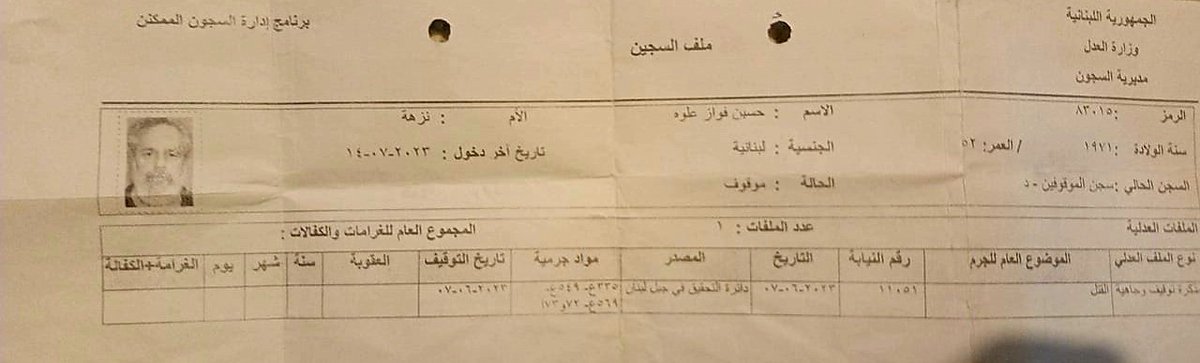 الجمهورية اللبنانية
وزارة العدل
مديرية السجون
ملف السجين
برنامج إدارة السجون الممكنن
الرمز : ٨٣٠١٥ الاسم : حسين فواز علوه الأم : نزهة
سنة الولادة : ١٩٧١ / العمر: ٥٢ الجنسية : لبنانية تاريخ آخر دخول : ٢٠٢٣-٠٧-١٤
السجن الحالي : سجن الموقوفين - د الحالة : موقوف
الملفات العدلية عدد الملفات : ١ المجموع العام للغرامات والكفالات :
نوع الملف العدلي الموضوع العام للجرم رقم النيابة التاريخ المصدر مواد جرمية تاريخ التوقيف العقوبة سنة شهر يوم الغرامة+الكفالة
مذكرة توقيف وجاهية القتل ١١٠٥١ ٢٠٢٣-٠٦-٠٧ دائرة التحقيق في جبل لبنان ٣٣٥ع- ٥٤٩ع- ٢٠٢٣-٠٦-٠٧
٥٦٩ع- ٧٢و٧٣